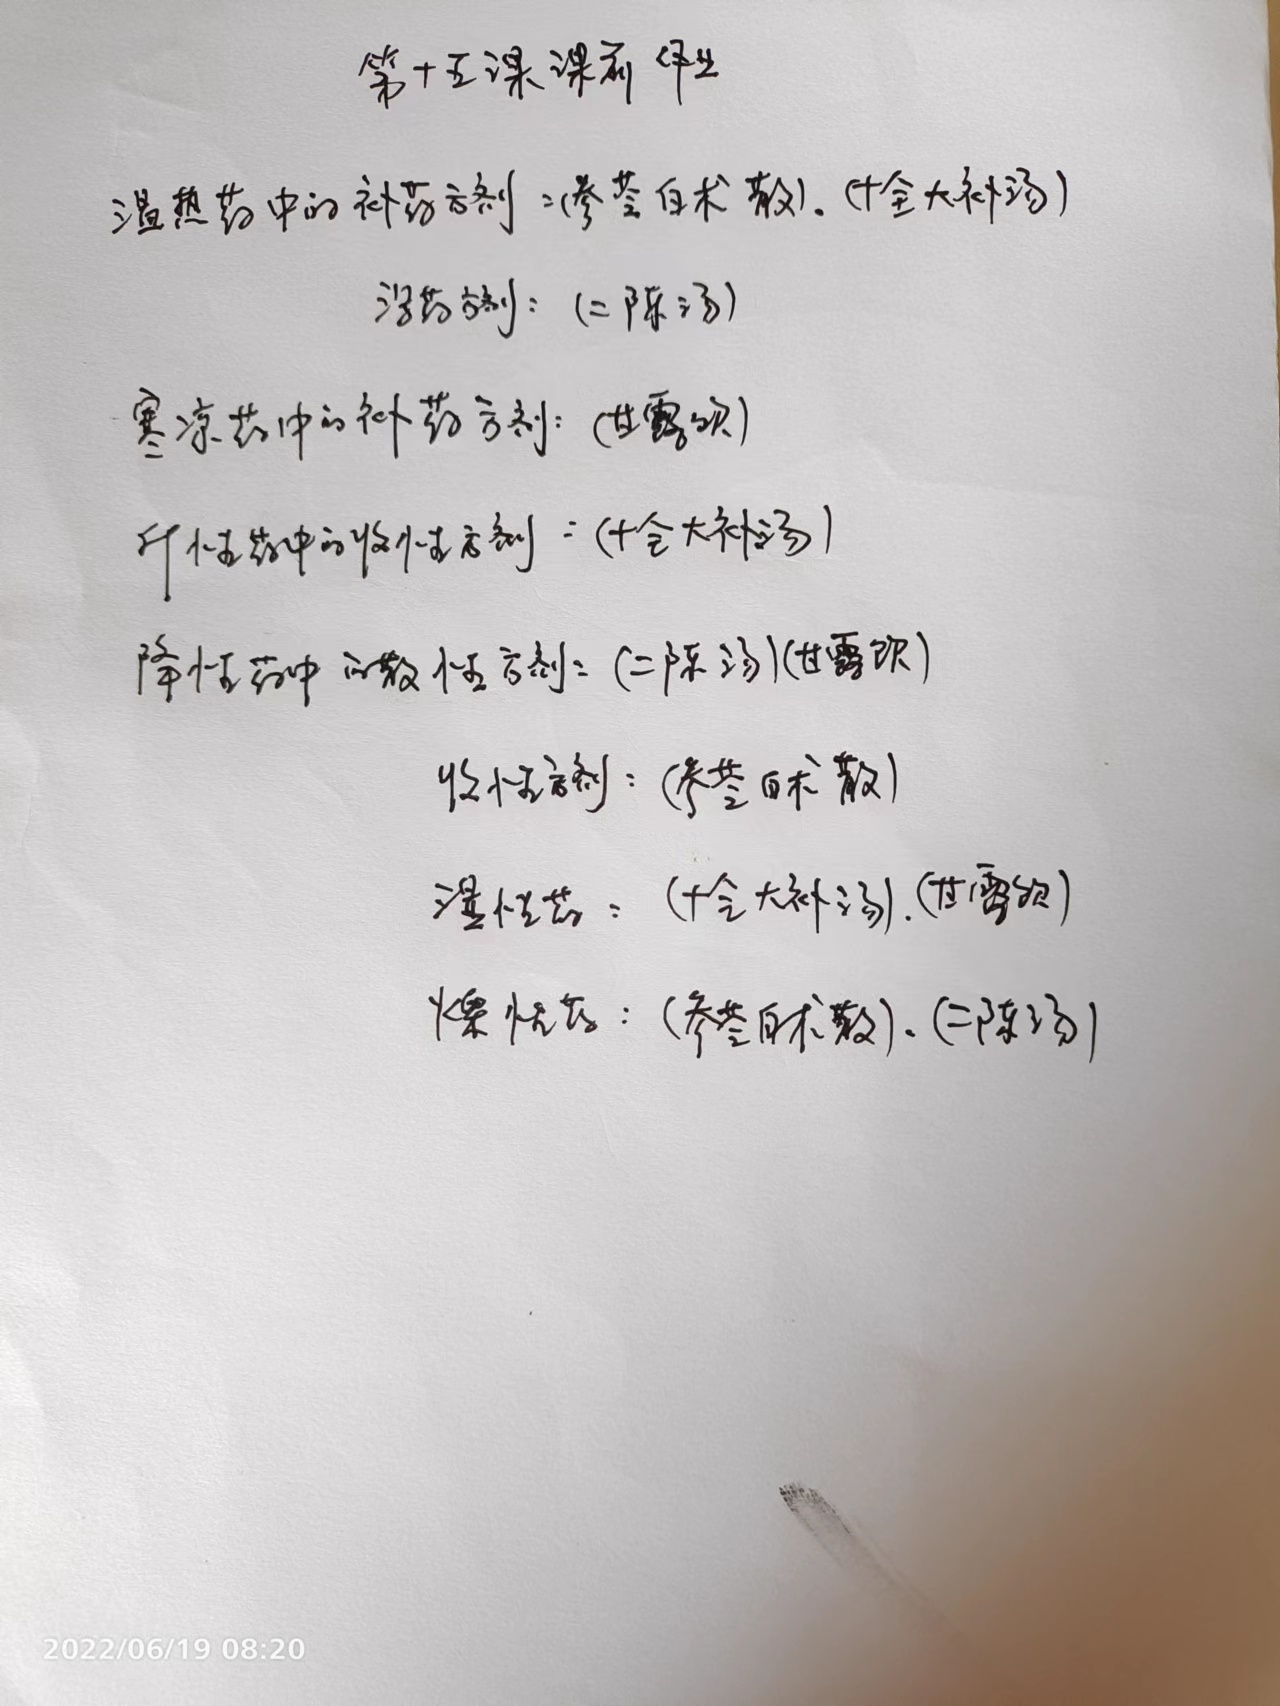 第十五课课前作业
温热药中的补药方剂:(参苓白术散).(十全大补汤)
泻药方剂:(二陈汤)
寒凉药中的补药方剂:(甘露饮)
升性药中的收性方剂:(十全大补汤)
降性药中的散性方剂:(二陈汤)(甘露饮)
收性方剂:(参苓白术散)
湿性药:(十全大补汤).(甘露饮)
燥性药:(参苓白术散).(二陈汤)
2022/06/19 08:20